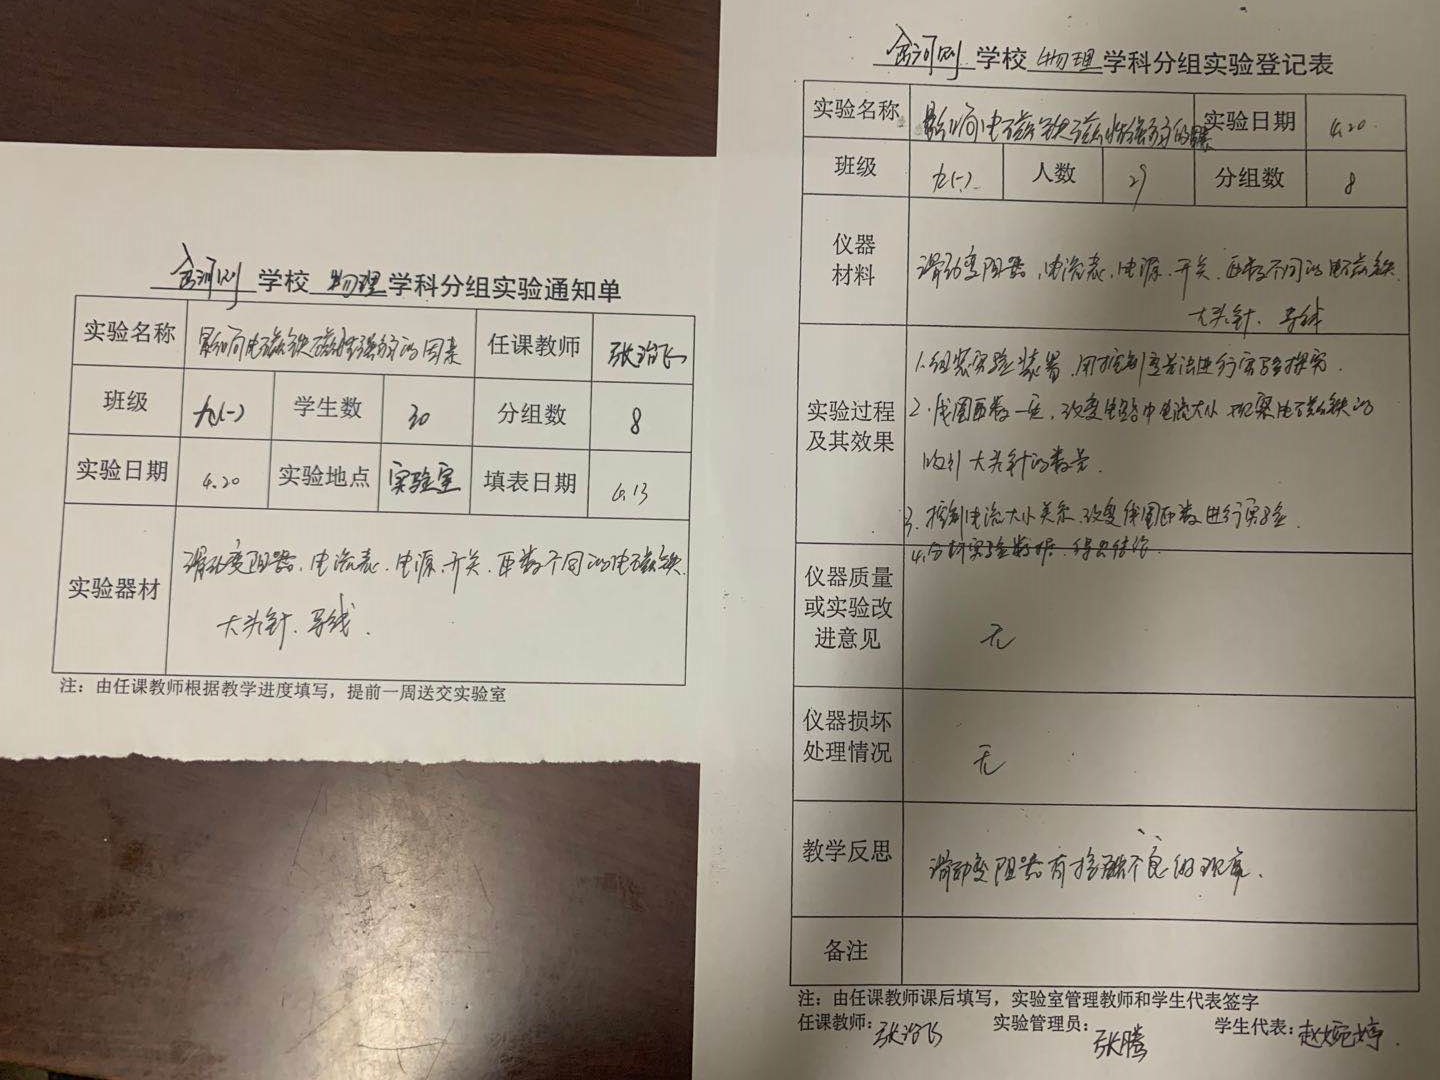 学校 物理 学科分组实验通知单
实验名称 影响电磁铁磁性强弱的因素 任课教师 张治飞
班级 九(一) 学生数 30 分组数 8
实验日期 4.20 实验地点 实验室 填表日期 4.13
实验器材
滑动变阻器、电流表、电源、开关、匝数不同的电磁铁、
大头针、导线.
注：由任课教师根据教学进度填写，提前一周送交实验室
学校 物理 学科分组实验登记表
实验名称 影响电磁铁磁性强弱的因素 实验日期 4.20.
班级 九(一) 人数 29 分组数 8
仪器
材料
滑动变阻器、电流表、电源、开关、匝数不同的电磁铁、
大头针、导线
实验过程
及其效果
1.组装实验装置,用控制变量法进行实验探究.
2.线圈匝数一定,改变电路中电流大小,观察电磁铁的
吸引大头针的数量.
3.控制电流大小关系,改变线圈匝数进行实验.
4.分析实验数据,得出结论.
仪器质量
或实验改
进意见
无
仪器损坏
处理情况
无
教学反思
滑动变阻器有接触不良的现象.
备注
注：由任课教师课后填写，实验室管理教师和学生代表签字
任课教师：张治飞 实验管理员：张腾 学生代表：赵婉婷.